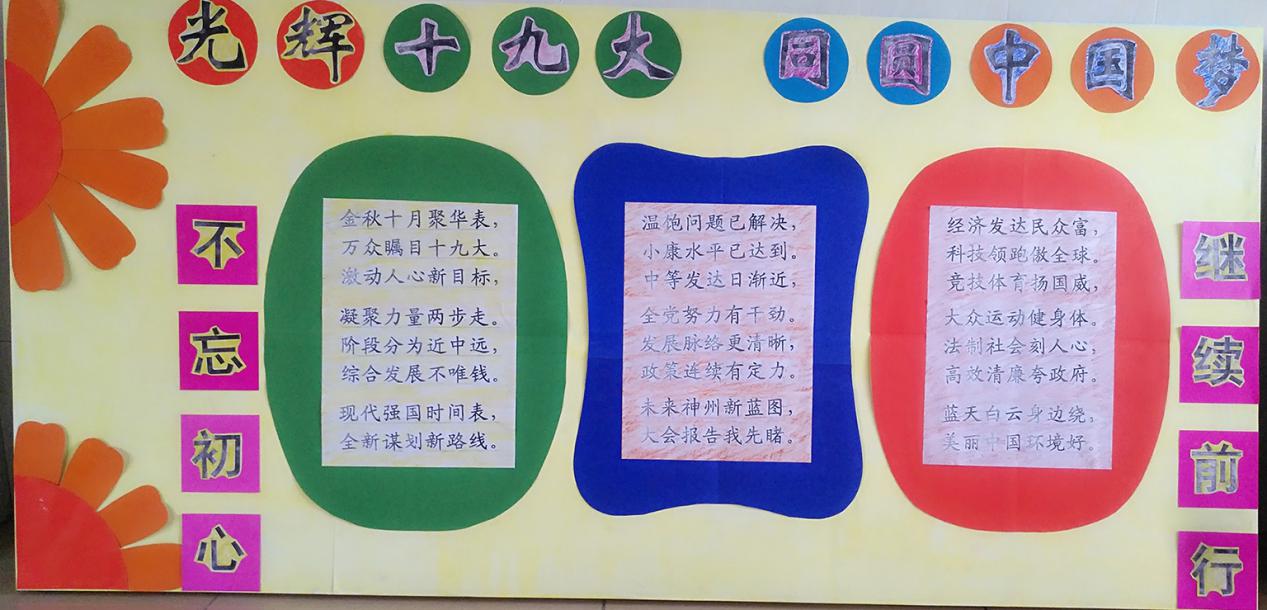 光辉十九大 同圆中国梦
不忘初心
金秋十月聚华表，
万众瞩目十九大。
激动人心新目标，
凝聚力量两步走。
阶段分为近中远，
综合发展不唯钱。
现代强国时间表，
全新谋划新路线。
温饱问题已解决，
小康水平已达到。
中等发达日渐近，
全党努力有干劲。
发展脉络更清晰，
政策连续有定力。
未来神州新蓝图，
大会报告我先睹。
经济发达民众富，
科技领跑傲全球。
竞技体育扬国威，
大众运动健身体。
法制社会刻人心，
高效清廉夸政府。
蓝天白云身边绕，
美丽中国环境好。
继续前行